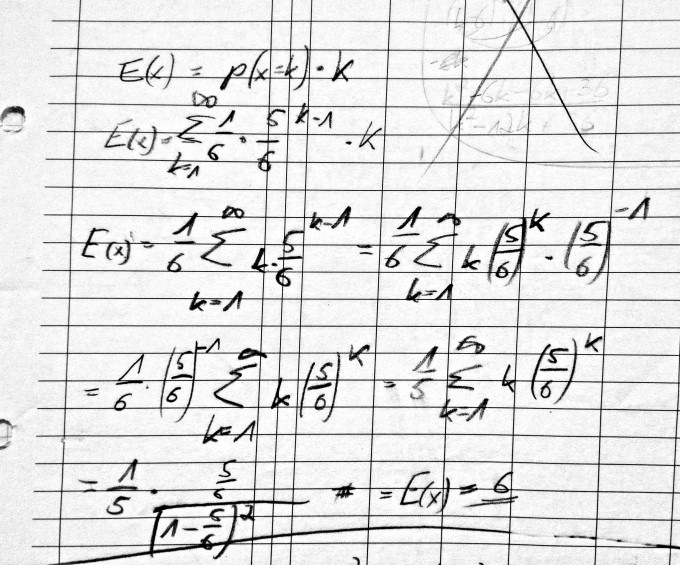 E(x) = p(x=k) · k
E(x) = ∞ ∑ k=1 1/6 · 5/6 ^(k-1) · k
E(x) = 1/6 ∞ ∑ k=1 k · 5/6 ^(k-1) = 1/6 ∞ ∑ k=1 k (5/6)^k · (5/6)^-1
= 1/6 · (5/6)^-1 ∞ ∑ k=1 k (5/6)^k = 1/5 ∞ ∑ k=1 k (5/6)^k
= 1/5 · 5/6 / (1 - 5/6)^2 = E(x) = 6